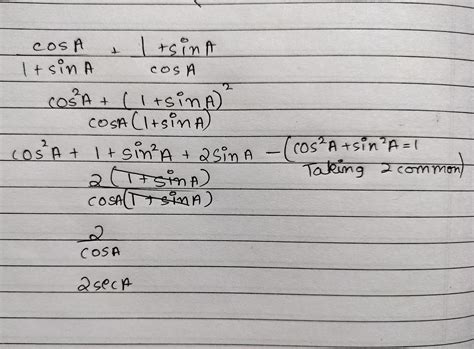 cosA + 1+sinA
1+sinA cosA
cos²A + (1+sinA)²
cosA(1+sinA)
cos²A + 1+sin²A + 2sinA – (cos²A+sin²A=1
Taking 2 common)
2(1+sinA)
cosA(1+sinA)
2
cosA
2secA